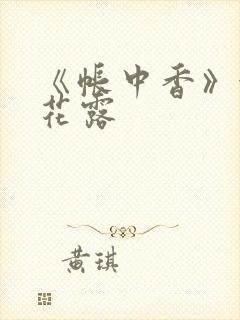 《帐中香》
花露
黄琪